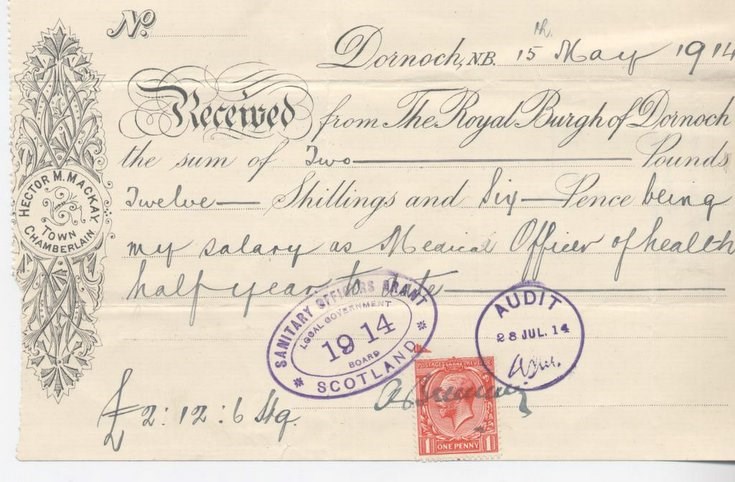 No.
Dornoch, N.B. 15th May 1914
Received from The Royal Burgh of Dornoch
the sum of Two Pounds
Twelve Shillings and Six Pence being
my salary as Medical Officer of health
half year to date
HECTOR M. MACKAY
TOWN
CHAMBERLAIN
SANITARY OFFICERS GRANT
LOCAL GOVERNMENT
1914
BOARD
SCOTLAND
AUDIT
28 JUL. 14
ONE PENNY
1 1
£2:12:6 Stg.